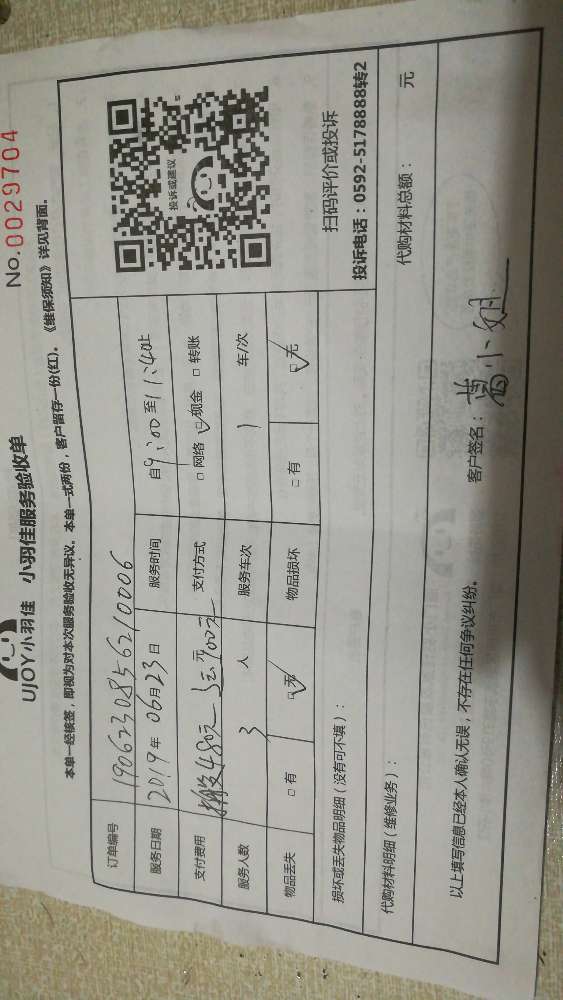 No.0029704
UJOY小羽佳 小羽佳服务验收单
本单一经核签，即视为对本次服务验收无异议。本单一式两份，客户留存一份(红)。《维保须知》详见背面。
订单编号 1906230856210006
服务日期 2019年06月23日 服务时间 自9:00至11:40止
支付费用 480元 100元 元 支付方式 □网络 ☑现金 □转账
服务人数 3 人 服务车次 1 车/次
物品丢失 □有 ☑无 物品损坏 □有 ☑无
投诉或建议
扫码评价或投诉
投诉电话：0592-5178888转2
损坏或丢失物品明细（没有可不填）：
代购材料明细（维修业务）： 代购材料总额： 元
以上填写信息已经本人确认无误，不存在任何争议纠纷。 客户签名： 小姐